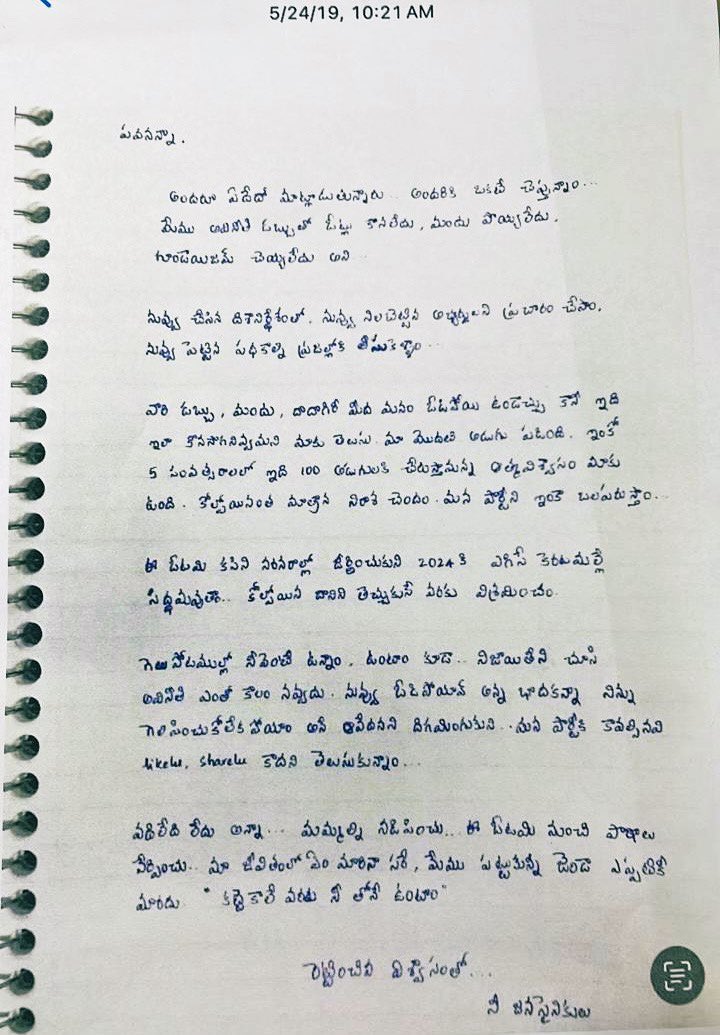 5/24/19, 10:21 AM
పవనన్నా.
అందరూ ఏదేదో మాట్లాడుతున్నారు... అందరికి ఒకటే చెప్తున్నాం...
మేము అవినీతి డబ్బుతో ఓట్లు కొనలేదు, మందు పొయ్యలేదు,
గూండాయిజమ్ చెయ్యలేదు అని...
నువ్వు చేసిన దిశానిర్దేశంలో, నువ్వు నిలబెట్టిన అభ్యర్థులని ప్రచారం చేసాం,
నువ్వు పెట్టిన పథకాల్ని ప్రజల్లోకి తీసుకెళ్ళాం...
వారి డబ్బు, మందు, దాదాగిరీ మీద మనం ఓడిపోయి ఉండొచ్చు కానీ ఇది
ఇలా కొనసాగనివ్వమని మాకు తెలుసు. మా మొదటి అడుగు పడింది. ఇంకో
5 సంవత్సరాలలో ఇది 100 అడుగులకి చేరుస్తామన్న ఆత్మవిశ్వాసం మాకు
ఉంది. కోల్పోయినంత మాత్రాన నిరాశ చెందం. మన పార్టీని ఇంకా బలపరుస్తాం...
ఈ ఓటమి కసిని నరనరాల్లో జీర్ణించుకుని 2024 కి ఎగిసే కెరటమల్లే
సిద్ధమవుతాం... కోల్పోయిన దానిని తెచ్చుకునే వరకు విశ్రమించం.
గెలుపోటముల్లో నీవెంటే ఉన్నాం, ఉంటాం కూడా.. నిజాయితీని చూసి
అవినీతి ఎంతో కాలం నవ్వదు. నువ్వు ఓడిపోయావ్ అన్న భాదకన్నా నిన్ను
గెలిపించుకోలేక పోయాం అనే ఆవేదనని దిగమింగుకుని.. మన పార్టీకి కావల్సినవి
likelu, sharelu కాదని తెలుసుకున్నాం...
వదిలేది లేదు అన్నా... మమ్మల్ని నడిపించు... ఈ ఓటమి నుంచి పాఠాలు
నేర్పించు.. మా జీవితంలో ఏం మారినా సరే, మేము పట్టుకున్న జెండా ఎప్పటికీ
మారదు. "కట్టె కాలే వరకు నీ తోనే ఉంటాం"
రెట్టించిన విశ్వాసంతో...
నీ జనసైనికులు